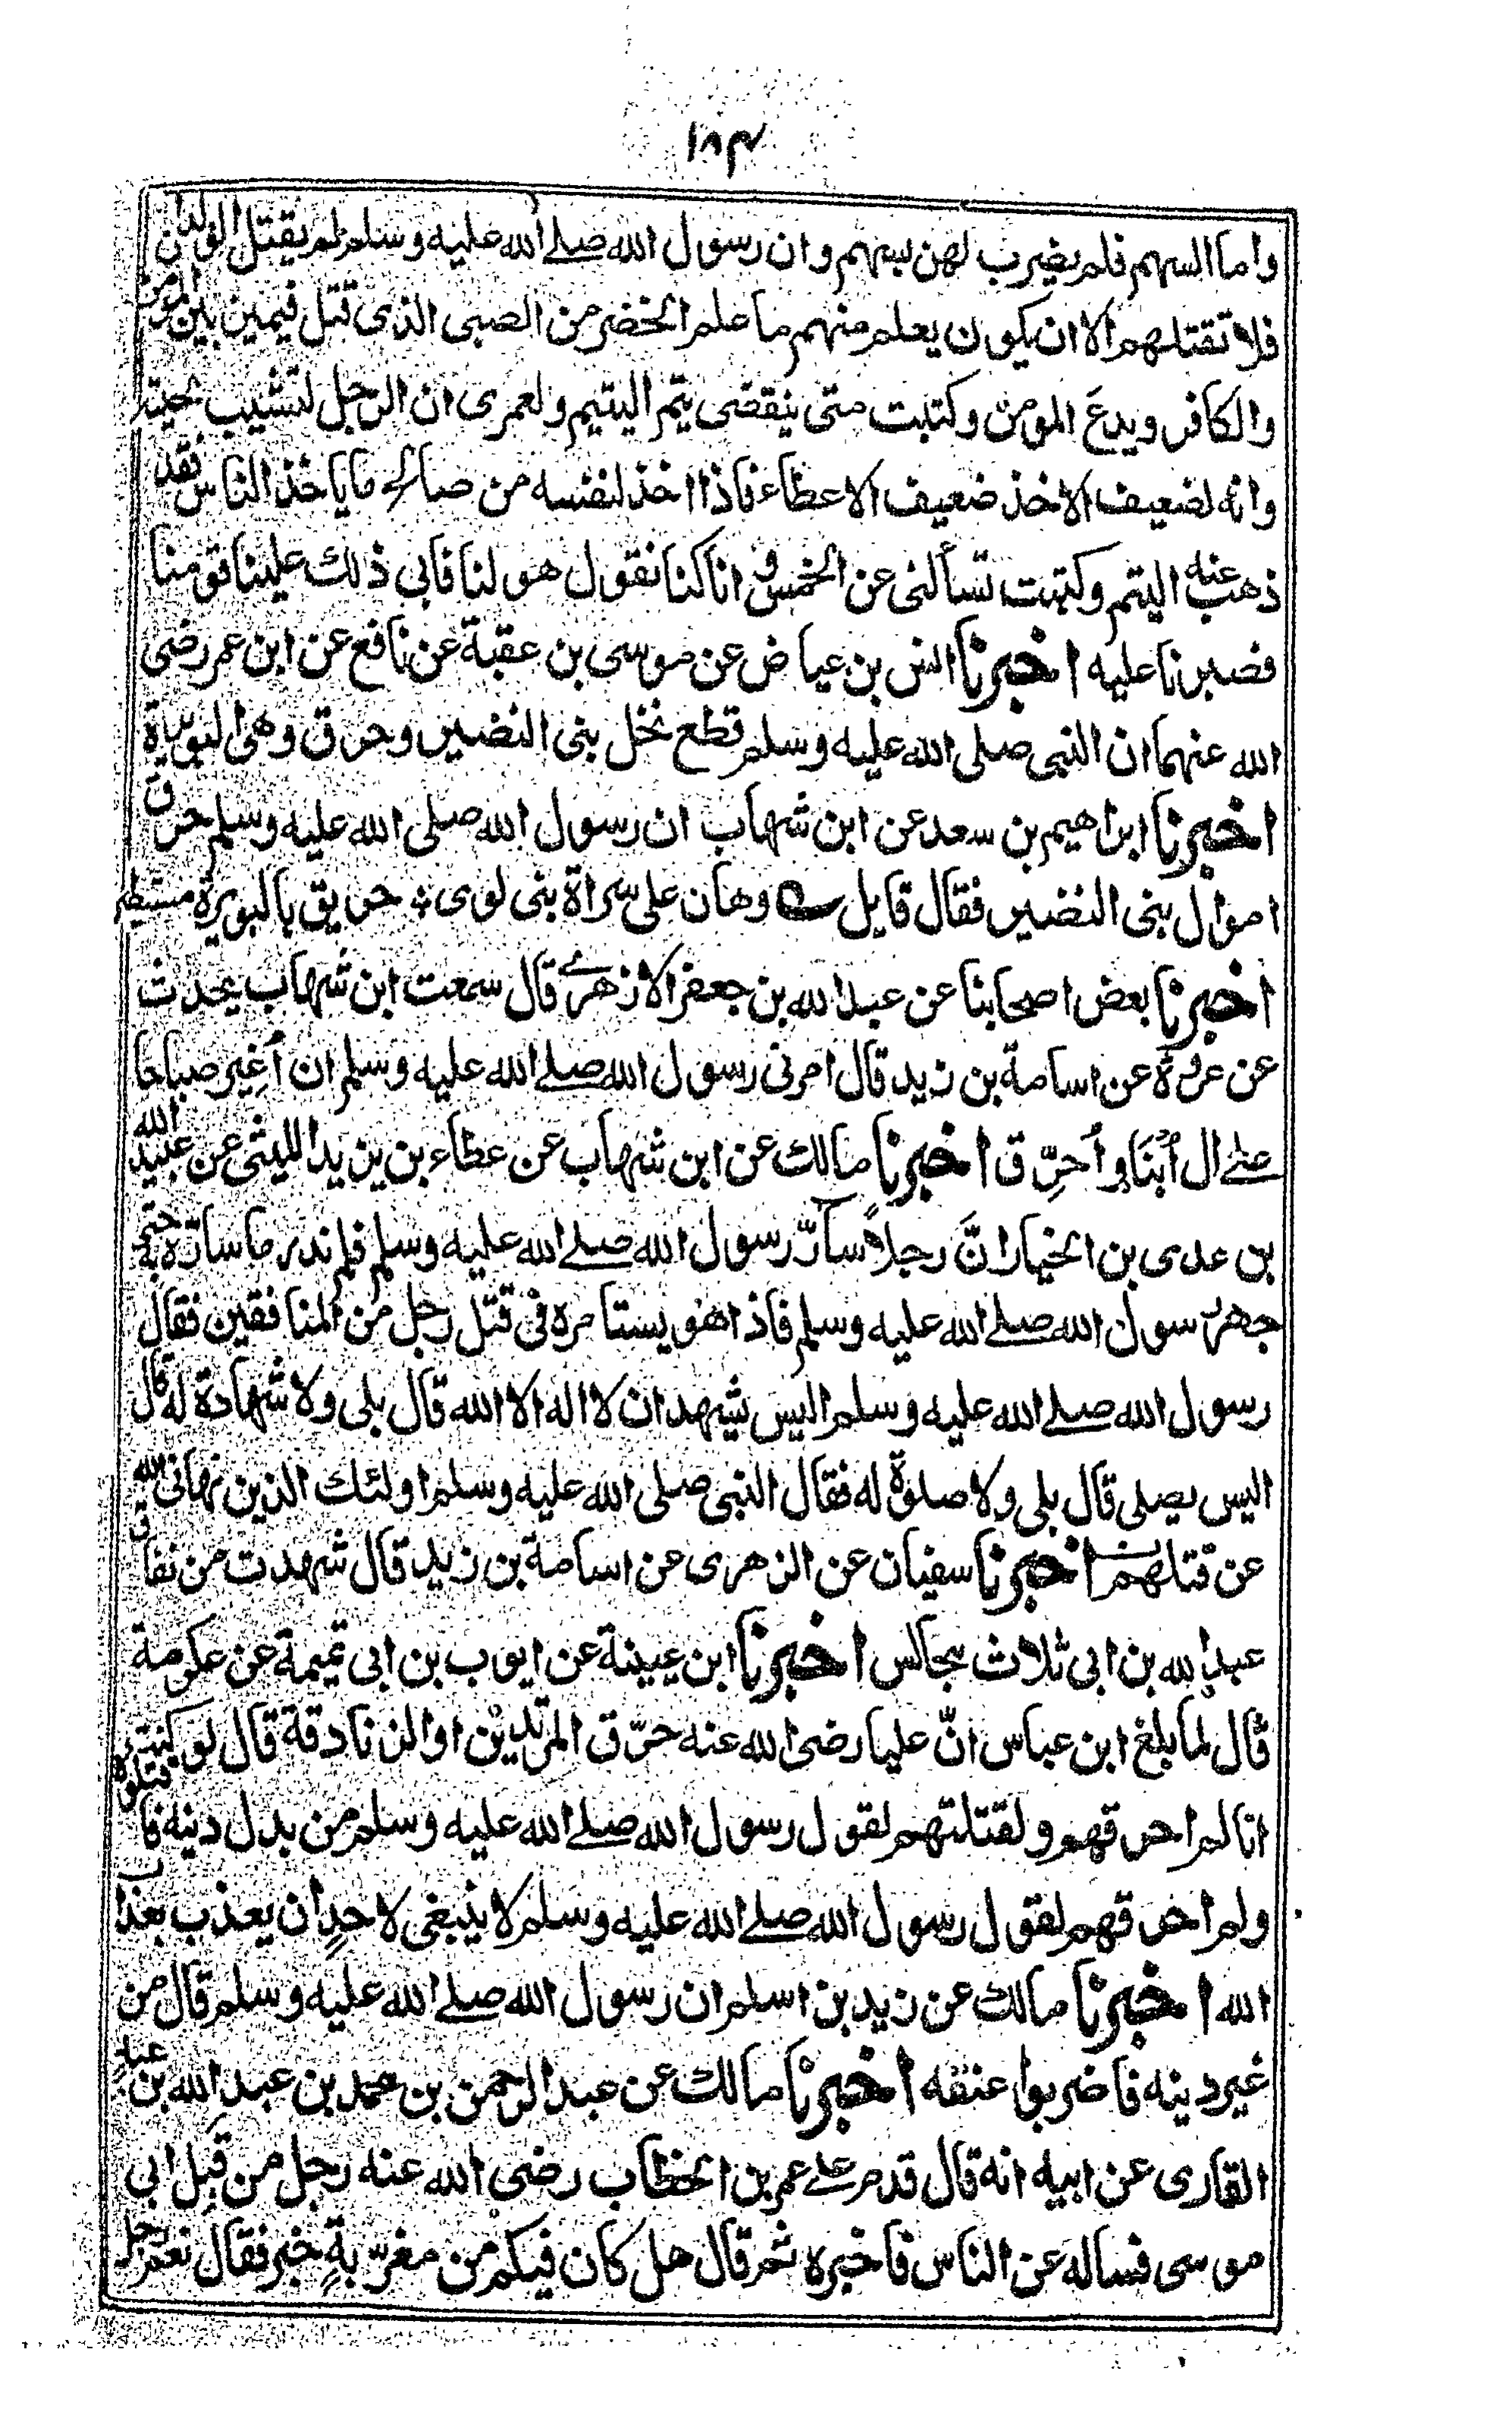 ١٨٣
واما السهم فلم يضرب لهن بسهم وان رسول الله صلے الله عليه وسلم لم يقتل الولدان
فلا تقتلهم الا ان يكون يعلم منهم ما علم الخضر من الصبى الذى قتل فيميز بين المومن
والكافر ويدعَ المومن وكتبت متى ينقضى يتم اليتيم ولعمرى ان الرجل لتشيب لحيته
وانه لضعيف الاخذ ضعيف الاعطاء فاذا اخذ لنفسه من صالح ما ياخذ الناس فقد
ذهب عنه اليتم وكتبت تسألنى عن الخمس و انا كنا نقول هو لنا فابى ذلك علينا قومنا
فصبرنا عليه اخبرنا انس بن عياض عن موسى بن عقبة عن نافع عن ابن عمر رضى
الله عنهما ان النبى صلى الله عليه وسلم قطع نخل بنى النضير وحرق وهى البويرة
اخبرنا ابراهيم بن سعد عن ابن شهاب ان رسول الله صلى الله عليه وسلم حرق
اموال بنى النضير فقال قايل وهان على سراة بنى لوى ؞ حريق بالبويرة مستطير
اخبرنا بعض اصحابنا عن عبد الله بن جعفر الازهرے قال سمعت ابن شهاب يحدث
عن عروة عن اسامة بن زيد قال امرنى رسول الله صلے الله عليه وسلم ان اُغِير صباحا
علے ال اُبْنَا و اُحرِّق اخبرنا مالك عن ابن شهاب عن عطاء بن يزيد الليثى عن عبيد الله
بن عدى بن الخيار انَّ رجلاً سارَّ رسول الله صلے الله عليه وسلم فلم ندر ما سارّه به حتى
جهر رسول الله صلے الله عليه وسلم فاذا هو يستامره فى قتل رجل من المنافقين فقال
رسول الله صلے الله عليه وسلم اليس يشهد ان لا اله الا الله قال بلى ولا شهادة له قال
اليس يصلى قال بلى ولا صلوة له فقال النبى صلى الله عليه وسلم اولئك الذين نهانى الله
عن قتلهم اخبرنا سفيان عن الزهرى عن اسامة بن زيد قال شهدت من نفاق
عبد الله بن ابى ثلاث مجالس اخبرنا ابن عيينة عن ايوب بن ابى تميمة عن عكرمة
قال لما بلغ ابن عباس انّ عليا رضى الله عنه حرّق المرتدين او الزنادقة قال لو كنت
انا لم احرقهم ولقتلتهم لقول رسول الله صلے الله عليه وسلم من بدل دينه فاقتلوه
ولم احرقهم لقول رسول الله صلے الله عليه وسلم لا ينبغى لاحدٍ ان يعذب بعذاب
الله اخبرنا مالك عن زيد بن اسلم ان رسول الله صلے الله عليه وسلم قال من
غير دينه فاضربوا عنقه اخبرنا مالك عن عبد الرحمن بن محمد بن عبد الله بن عبدٍ
القارى عن ابيه انه قال قدم علے عمر بن الخطاب رضى الله عنه رجل من قِبل ابى
موسى فساله عن الناس فاخبره ثم قال هل كان فيكم من مغرّبةِ خبر فقال نعم رجل